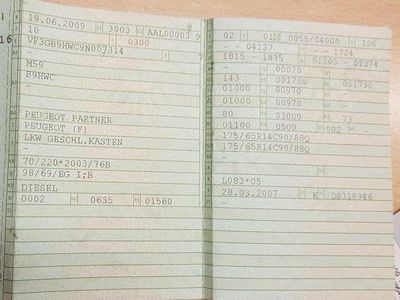 19.06.2009 3003 AAL00003 9
16 10 0300
VF3GB9HWC9N007314
M59
B9HWC
-
PEUGEOT PARTNER
PEUGEOT (F)
LKW GESCHL.KASTEN
-
70/220*2003/76B
98/69/EG I;B
DIESEL
0002 0635 01560
02 0055/04000 150
- - 04137 - - 1724
1815 - 1835 01205 - 01374
- 00070 -
143 00070 001730
01000 00970 -
01000 00970 -
80 03000 73
01100 0500 002 -
175/65R14C90/88Q
175/65R14C90/88Q
-
L083*05
28.03.2007 K DS318946